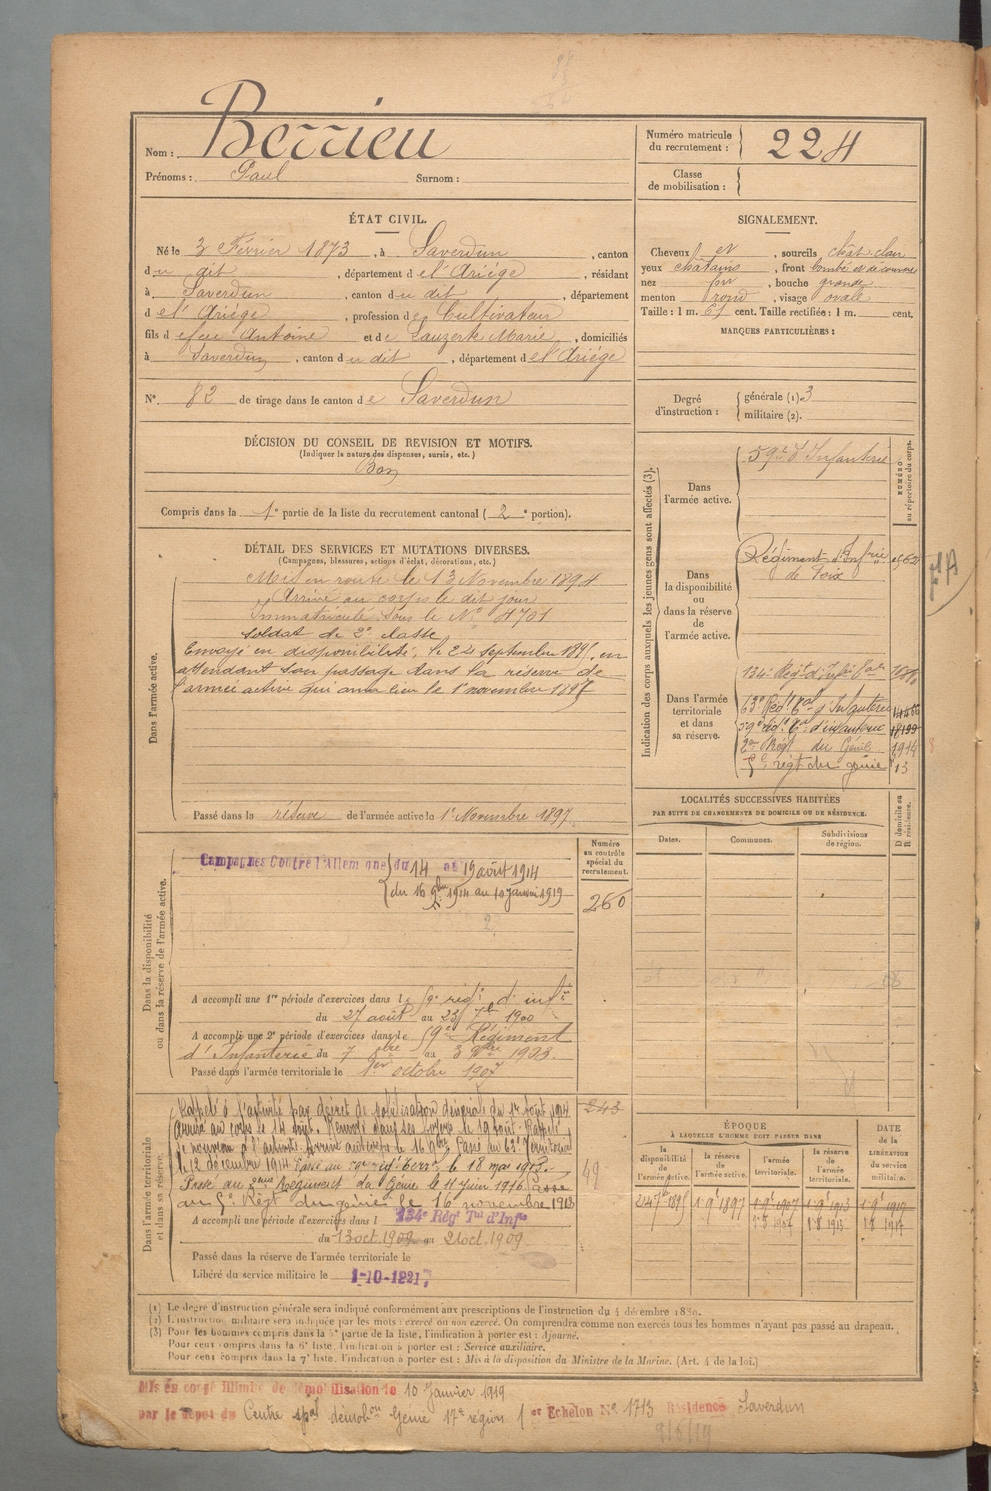 Nom : Berrieu
Prénoms : Paul Surnom :
Numéro matricule du recrutement : 224
Classe de mobilisation :
ÉTAT CIVIL.
Né le 3 Février 1873, à Saverdun, canton
du dit, département de l'Ariège, résidant
à Saverdun, canton du dit, département
de l'Ariège, profession de Cultivateur
fils de feu Antoine et de Lauzerte Marie, domiciliés
à Saverdun, canton du dit, département de l'Ariège
N°. 82 de tirage dans le canton de Saverdun
SIGNALEMENT.
Cheveux et, sourcils chât. clair
yeux châtains, front bombé et découvert
nez fort, bouche grande
menton rond, visage ovale
Taille : 1 m. 61 cent. Taille rectifiée : 1 m. cent.
MARQUES PARTICULIÈRES :
Degré d'instruction : générale (1). 3
militaire (2).
DÉCISION DU CONSEIL DE REVISION ET MOTIFS.
(Indiquer la nature des dispenses, sursis, etc.)
Bon
Compris dans la 1e partie de la liste du recrutement cantonal (2e portion).
DÉTAIL DES SERVICES ET MUTATIONS DIVERSES.
(Campagnes, blessures, actions d'éclat, décorations, etc.)
Dans l'armée active.
Mis en route le 13 Novembre 1894
Arrivé au corps le dit jour
Immatriculé sous le N° 4701
soldat de 2e classe
Envoyé en disponibilité, le 24 septembre 1895, en
attendant son passage dans la réserve de
l'armée active qui aura lieu le 1er novembre 1897
Passé dans la réserve de l'armée active le 1er Novembre 1897.
Indication des corps auxquels les jeunes gens sont affectés (3).
NUMÉRO au répertoire du corps.
Dans l'armée active.
59e d'Infanterie
Dans la disponibilité ou dans la réserve de l'armée active.
Régiment d'Infrie
de Foix
Dans l'armée territoriale et dans sa réserve.
134e Régt d'Infie Tale
63e Régt Tal d'Infanterie
59e régt Tal d'infanterie 18199
2me Régt du Génie 1944
5e régt du génie 13
LOCALITÉS SUCCESSIVES HABITÉES
PAR SUITE DE CHANGEMENTS DE DOMICILE OU DE RÉSIDENCE.
Dates. Communes. Subdivisions de région. D domicile ou R résidence.
Dans la disponibilité ou dans la réserve de l'armée active.
Numéro au contrôle spécial du recrutement.
260
Campagnes Contre l'Allemagne du 14 au 19 août 1914
du 16 9bre 1914 au 10 Janvier 1919
A accompli une 1re période d'exercices dans le 59e régt d'infie
du 27 août au 23 7bre 1900
A accompli une 2e période d'exercices dans le 59e Régiment
d'Infanterie du 7 8bre au 3 9bre 1903.
Passé dans l'armée territoriale le 1er octobre 1907
Dans l'armée territoriale et dans sa réserve.
243
49
Rappelé à l'activité par décret de mobilisation générale du 1er Août 1914
Arrivé au corps le 14 août. Renvoyé dans ses foyers le 19 août. Rappelé
de nouveau à l'activité. Arrivé au corps le 16 9bre. Passé au 63e Territorial
le 12 décembre 1914. Passé au 59e régt terr. le 18 mai 1915.
Passé au 2eme Régiment du Génie le 11 Juin 1916. Passé
au 5e Régt du génie le 16 novembre 1918
A accompli une période d'exercices dans l 134e Régt Tal d'Infie
du 13 oct. 1909 au 21 oct. 1909
Passé dans la réserve de l'armée territoriale le
Libéré du service militaire le 1-10-1921
ÉPOQUE
À LAQUELLE L'HOMME DOIT PASSER DANS
la disponibilité de l'armée active. la réserve de l'armée active. l'armée territoriale. la réserve de l'armée territoriale.
DATE de la LIBÉRATION du service militaire.
24 7bre 1895 1 9bre 1897 1 9bre 1907 1 9bre 1913 1 9bre 1919
(1) Le degré d'instruction générale sera indiqué conformément aux prescriptions de l'instruction du 4 décembre 1889.
(2) L'instruction militaire sera indiquée par les mots : exercé ou non exercé. On comprendra comme non exercés tous les hommes n'ayant pas passé au drapeau.
(3) Pour les hommes compris dans la 5e partie de la liste, l'indication à porter est : Ajourné.
Pour ceux compris dans la 6e liste, l'indication à porter est : Service auxiliaire.
Pour ceux compris dans la 7e liste, l'indication à porter est : Mis à la disposition du Ministre de la Marine. (Art. 4 de la loi.)
Mis en congé illimité de démobilisation le 10 Janvier 1919
par le dépôt du Centre spal démobon Génie 17e région 1er Echelon No 1713 Résidence Saverdun
9/6/19